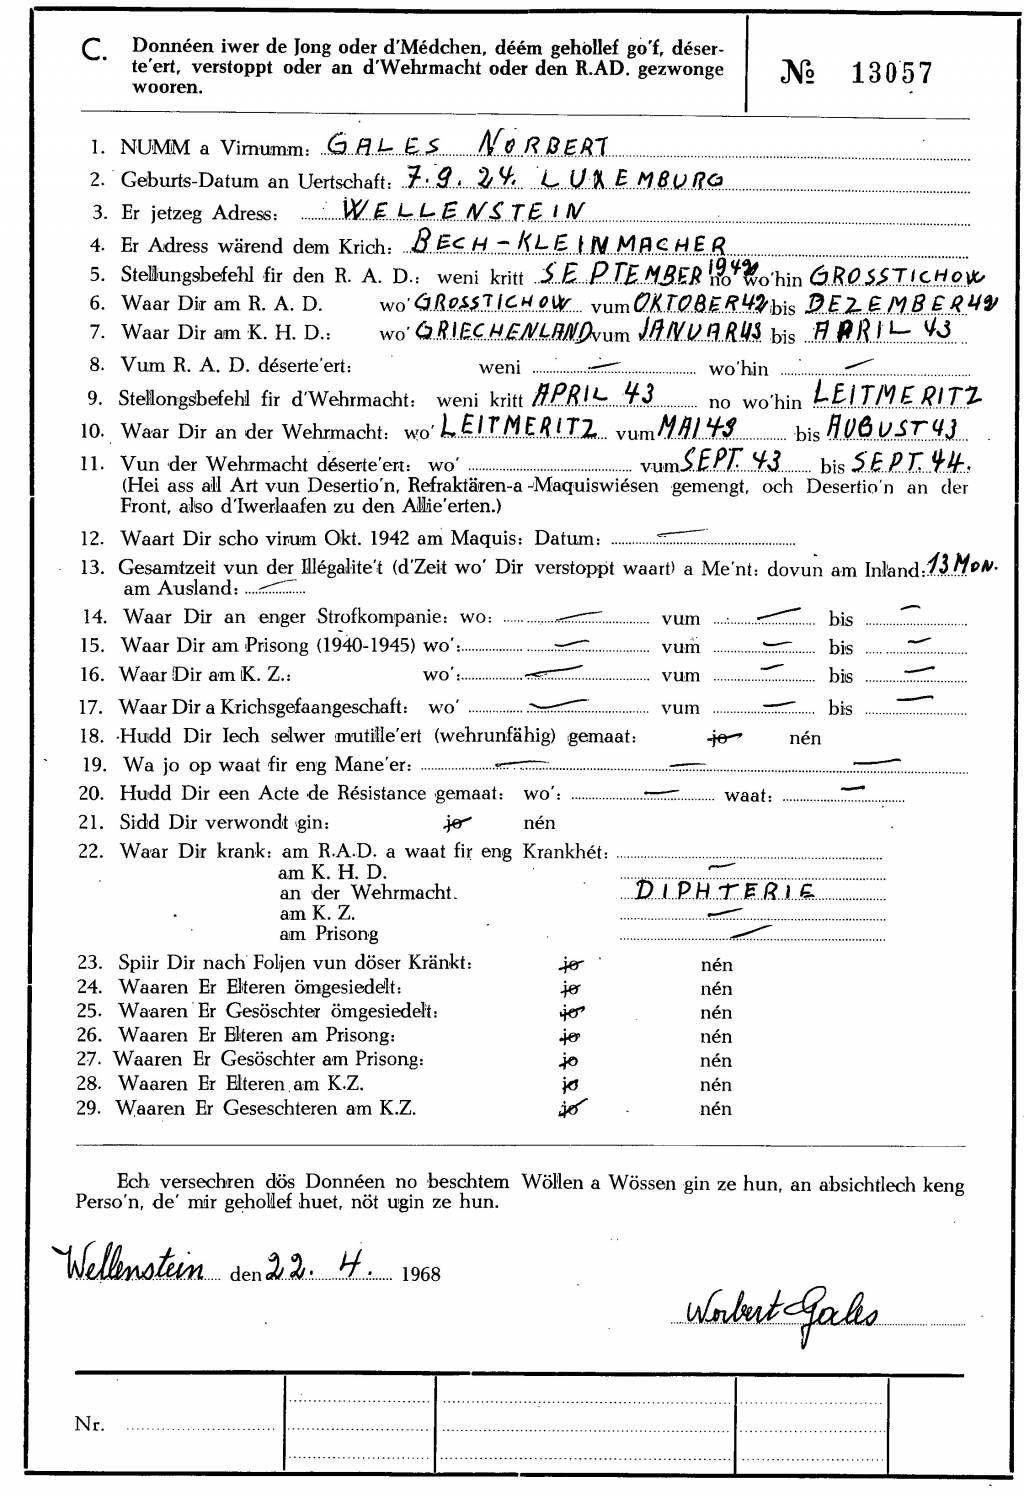 C. Donnéen iwer de Jong oder d'Médchen, déém gehöllef go'f, déser-
te'ert, verstoppt oder an d'Wehrmacht oder den R.AD. gezwonge
wooren.
№ 13057
1. NUMM a Virnumm: GALES NORBERT
2. Geburts-Datum an Uertschaft: 7.9.24. LUXEMBURG
3. Er jetzeg Adress: WELLENSTEIN
4. Er Adress wärend dem Krich: BECH-KLEINMACHER
5. Stellungsbefehl fir den R. A. D.: weni kritt SEPTEMBER 1942 no wo'hin GROSSTICHOW
6. Waar Dir am R. A. D. wo' GROSSTICHOW vum OKTOBER 42 bis DEZEMBER 42
7. Waar Dir am K. H. D.: wo' GRIECHENLAND vum JANUAR 43 bis APRIL 43
8. Vum R. A. D. déserte'ert: weni — wo'hin —
9. Stellongsbefehl fir d'Wehrmacht: weni kritt APRIL 43 no wo'hin LEITMERITZ
10. Waar Dir an der Wehrmacht: wo' LEITMERITZ vum MAI 43 bis AUGUST 43
11. Vun der Wehrmacht déserte'ert: wo' vum SEPT. 43 bis SEPT. 44.
(Hei ass all Art vun Desertio'n, Refraktären-a -Maquiswiésen gemengt, och Desertio'n an der
Front, also d'Iwerlaafen zu den Allie'erten.)
12. Waart Dir scho virum Okt. 1942 am Maquis: Datum: —
13. Gesamtzeit vun der Illégalite't (d'Zeit wo' Dir verstoppt waart) a Me'nt: dovun am Inland: 13 MON.
am Ausland: —
14. Waar Dir an enger Strofkompanie: wo: — vum — bis —
15. Waar Dir am Prisong (1940-1945) wo': — vum — bis —
16. Waar Dir am K. Z.: wo': — vum — bis —
17. Waar Dir a Krichsgefaangeschaft: wo' — vum — bis —
18. Hudd Dir Iech selwer mutille'ert (wehrunfähig) gemaat: jo nén
19. Wa jo op waat fir eng Mane'er: — — —
20. Hudd Dir een Acte de Résistance gemaat: wo': — waat: —
21. Sidd Dir verwondt gin: jo nén
22. Waar Dir krank: am R.A.D. a waat fir eng Krankhét:
am K. H. D. —
an der Wehrmacht. DIPHTERIE
am K. Z. —
am Prisong —
23. Spiir Dir nach Foljen vun döser Kränkt: jo nén
24. Waaren Er Elteren ömgesiedelt: jo nén
25. Waaren Er Gesöschter ömgesiedelt: jo nén
26. Waaren Er Elteren am Prisong: jo nén
27. Waaren Er Gesöschter am Prisong: jo nén
28. Waaren Er Elteren am K.Z. jo nén
29. Waaren Er Geseschteren am K.Z. jo nén
Ech versechren dös Donnéen no beschtem Wöllen a Wössen gin ze hun, an absichtlech keng
Perso'n, de' mir gehollef huet, nöt ugin ze hun.
Wellenstein den 22. 4. 1968
Norbert Gales
Nr.